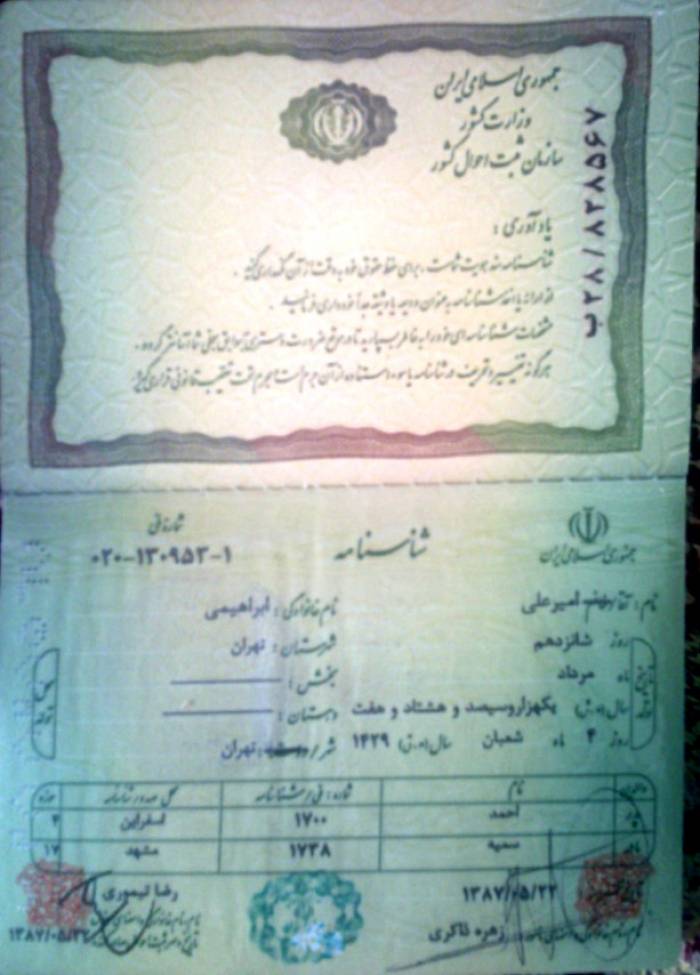 جمهوری اسلامی ایران
وزارت کشور
سازمان ثبت احوال کشور
ب۲۸/۸۲۸۵۶۷
یادآوری :
شناسنامه سند هویت شماست ، برای حفظ حقوق خود به دقت از آن نگهداری کنید .
از ارائه یا اخذ شناسنامه به عنوان ودیعه یا وثیقه جداً خودداری فرمائید .
مشخصات شناسنامه‌ای خود را به خاطر بسپارید تا در موقع ضرورت دسترسی به سوابق سجلی شما آسانتر گردد .
هرگونه تغییر و تحریف در شناسنامه یا سوء استفاده از آن جرم است و مجرم تحت تعقیب قانونی قرار می‌گیرد
جمهوری اسلامی ایران
شناسنامه
شماره ملی
۰۲۰-۱۳۰۹۵۳-۱
نام : آقا امیرعلی نام خانوادگی : ابراهیمی
روز شانزدهم شهرستان : تهران
ماه مرداد بخش :
سال (ه.ش) یکهزاروسیصد و هشتاد و هفت دهستان :
روز ۴ ماه شعبان سال (ه.ق) ۱۴۲۹ شهر / تهران
نام شماره : ملی / شناسنامه محل صدور شناسنامه حوزه
پدر احمد ۱۷۰۰ اسفراین ۴
مادر سمیه ۱۷۳۸ مشهد ۱۷
۱۳۸۷/۰۵/۲۲ رضا تیموری
زهره ذاکری ۱۳۸۷/۰۵/۲۲